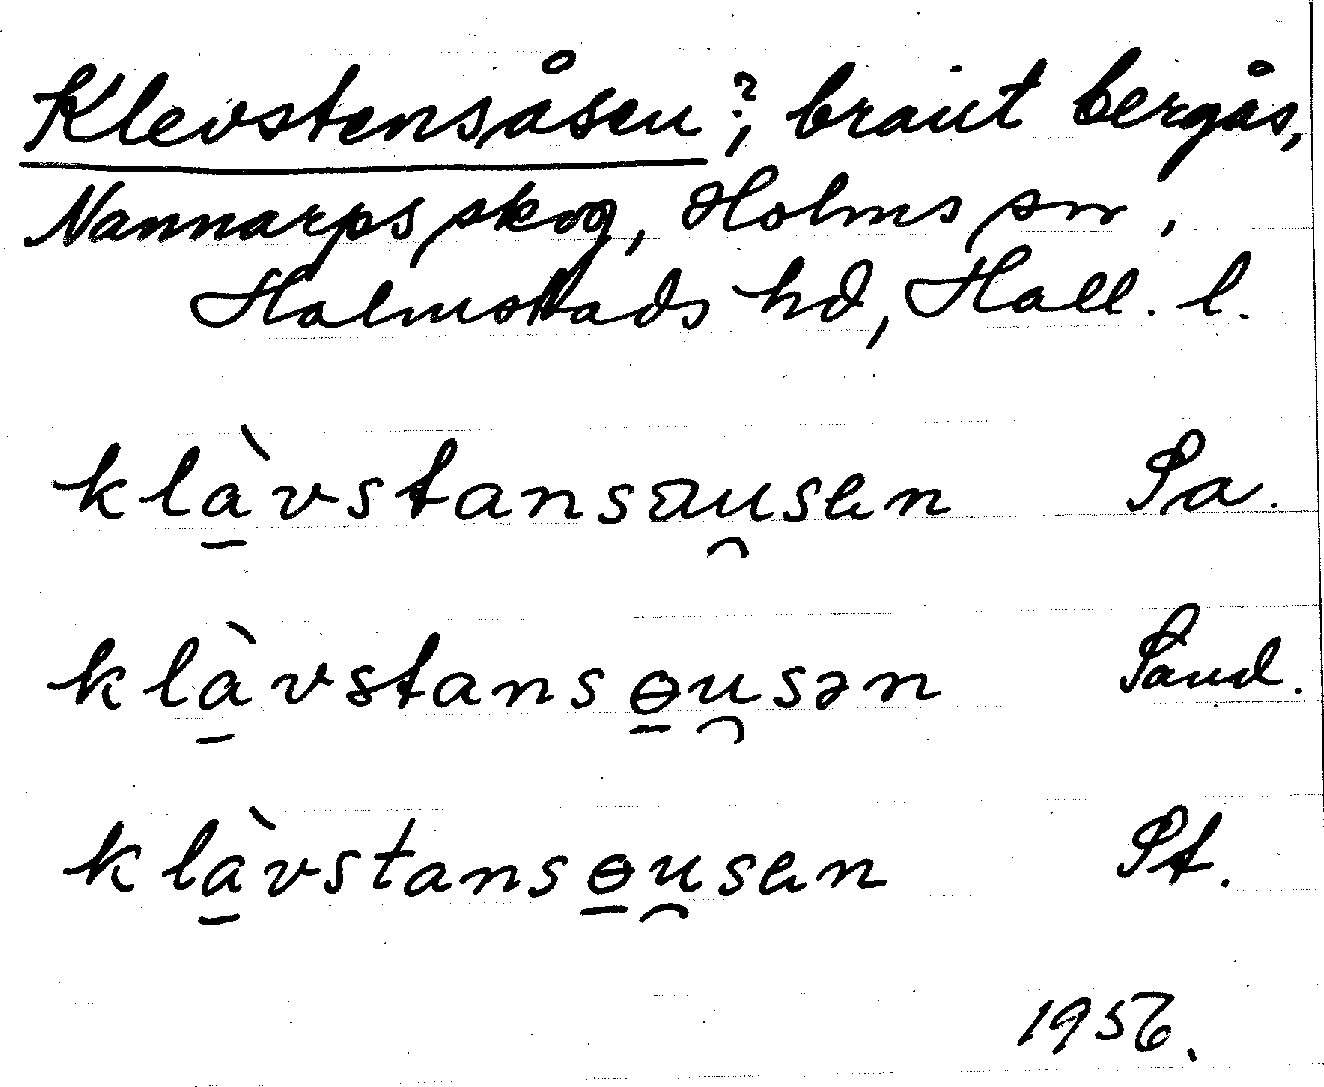 Klevstensåsen?, brant bergås,
Nannarps skog, Holms sn.
Halmstads hd, Hall. l.
klà̱vstansau̯sen Pa.
klà̱vstansɵ̱u̯sən Sand.
klà̱vstansɵ̱u̯sen St.
1956.